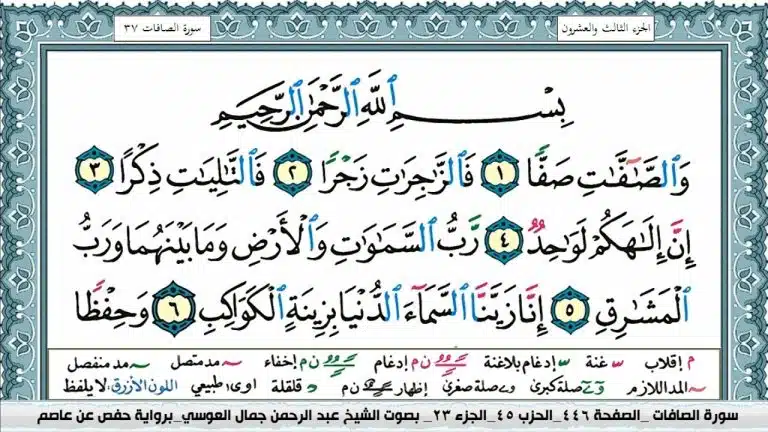 الجزء الثالث والعشرون
سورة الصافات ٣٧
بِسْمِ ٱللَّهِ ٱلرَّحْمَٰنِ ٱلرَّحِيمِ
وَٱلصَّٰٓفَّٰتِ صَفًّا ١ فَٱلزَّٰجِرَٰتِ زَجْرًا ٢ فَٱلتَّٰلِيَٰتِ ذِكْرًا ٣
إِنَّ إِلَٰهَكُمْ لَوَٰحِدٌ ٤ رَّبُّ ٱلسَّمَٰوَٰتِ وَٱلْأَرْضِ وَمَا بَيْنَهُمَا وَرَبُّ
ٱلْمَشَٰرِقِ ٥ إِنَّا زَيَّنَّا ٱلسَّمَآءَ ٱلدُّنْيَا بِزِينَةٍ ٱلْكَوَاكِبِ ٦ وَحِفْظًا
م إقلاب غنة إدغام بلاغنة ن م إدغام ن م إخفاء مد متصل مد منفصل
المد اللازم صلة كبرى صلة صغرى إظهار ن م قلقلة اوى طبيعي اللون الأزرق لا يلفظ
سورة الصافات _الصفحة ٤٤٦_الحزب ٤٥_الجزء ٢٣_ بصوت الشيخ عبد الرحمن جمال العوسي_برواية حفص عن عاصم